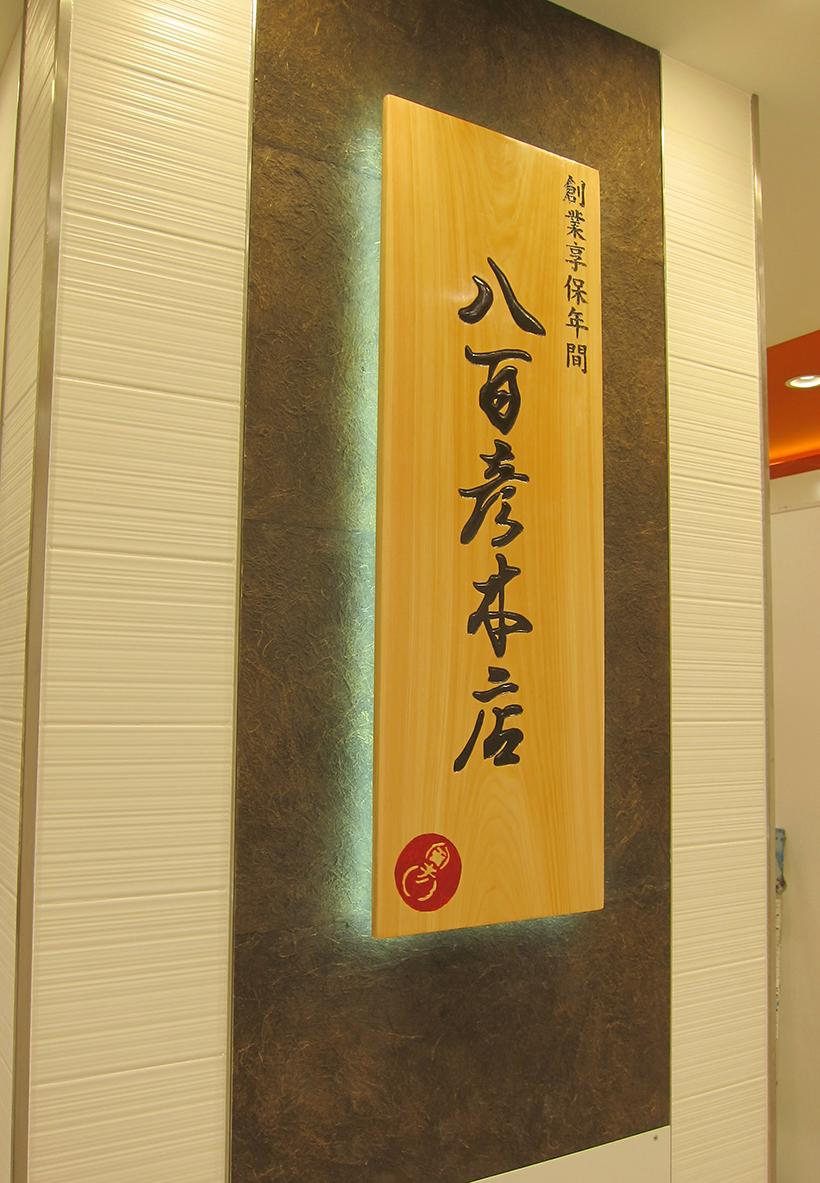 創業享保年間
八百彦本店